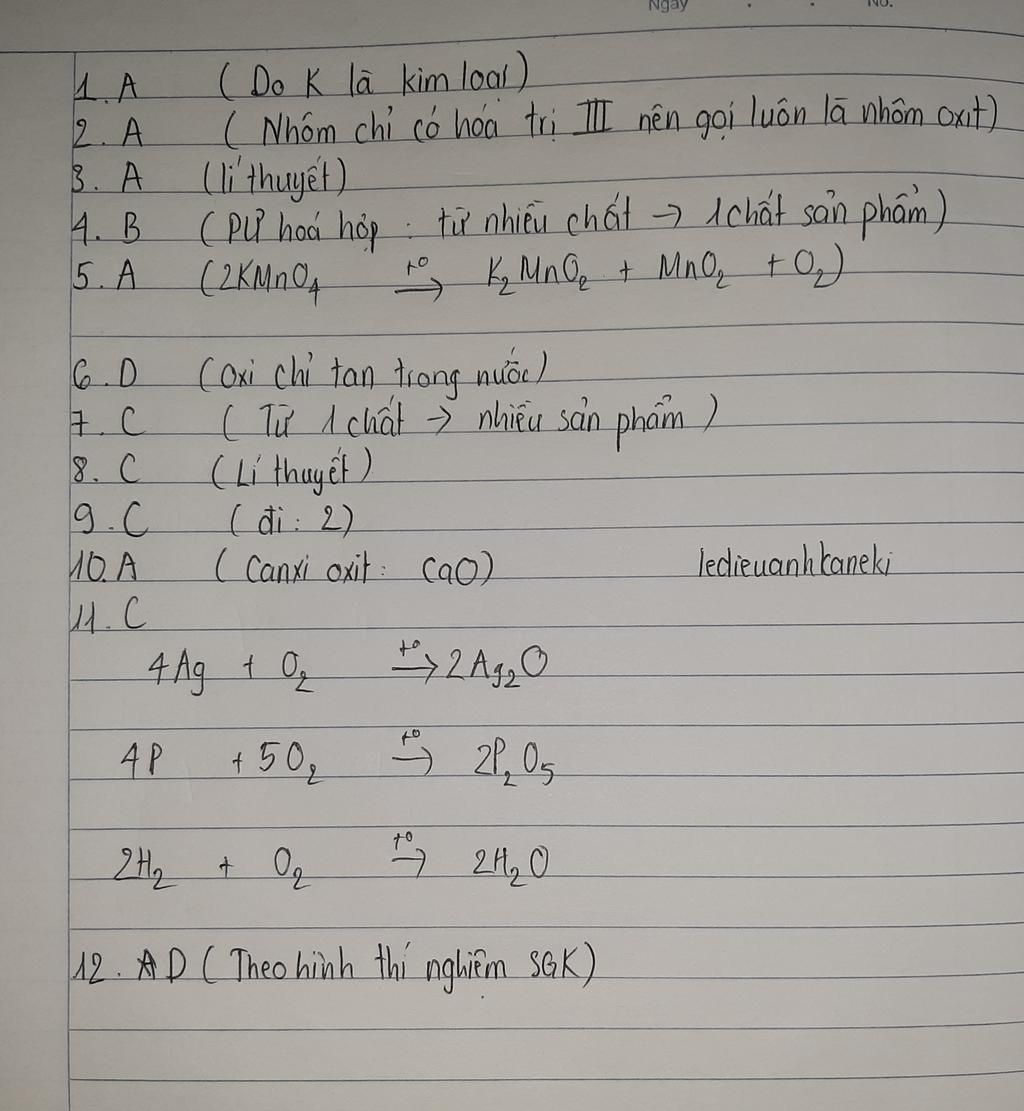 Ngày No.
1. A ( Do K là kim loại )
2. A ( Nhôm chỉ có hóa trị III nên gọi luôn là nhôm oxit)
3. A (lí thuyết)
4. B (PƯ hoá hợp : từ nhiều chất → 1 chất sản phẩm)
5. A (2KMnO₄ t° → K₂MnO₂ + MnO₂ + O₂)
6. D (Oxi chỉ tan trong nước)
7. C ( Từ 1 chất → nhiều sản phẩm )
8. C (Lí thuyết)
9. C ( đi : 2)
10. A ( Canxi oxit : CaO) ledieuanhkaneki
11. C
4Ag + O₂ t° → 2Ag₂O
4P + 5O₂ t° → 2P₂O₅
2H₂ + O₂ t° → 2H₂O
12. D ( Theo hình thí nghiệm SGK)